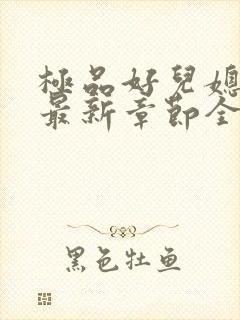 極品好兒媳
最新章節全
黑色牡鱼